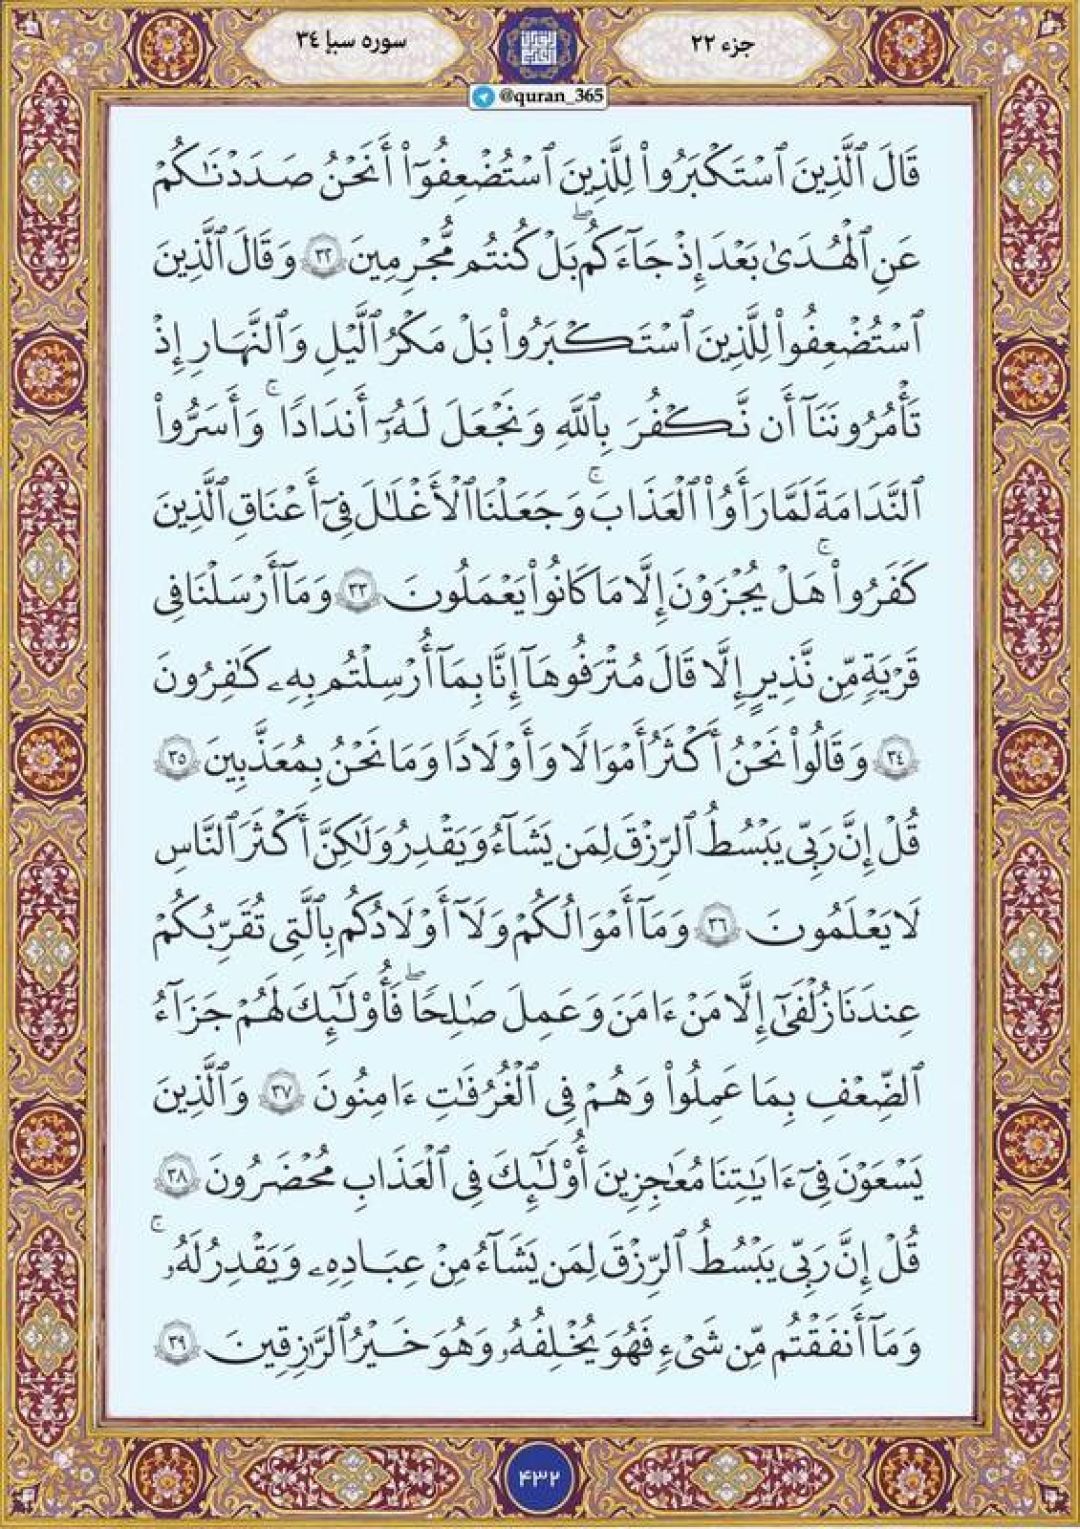 جزء ۲۲
سوره سبإ ۳۴
@quran_365
قَالَ ٱلَّذِينَ ٱسْتَكْبَرُوا۟ لِلَّذِينَ ٱسْتُضْعِفُوٓا۟ أَنَحْنُ صَدَدْنَـٰكُمْ
عَنِ ٱلْهُدَىٰ بَعْدَ إِذْ جَآءَكُم ۖ بَلْ كُنتُم مُّجْرِمِينَ ۳۲ وَقَالَ ٱلَّذِينَ
ٱسْتُضْعِفُوا۟ لِلَّذِينَ ٱسْتَكْبَرُوا۟ بَلْ مَكْرُ ٱلَّيْلِ وَٱلنَّهَارِ إِذْ
تَأْمُرُونَنَآ أَن نَّكْفُرَ بِٱللَّهِ وَنَجْعَلَ لَهُۥٓ أَندَادًا ۚ وَأَسَرُّوا۟
ٱلنَّدَامَةَ لَمَّا رَأَوُا۟ ٱلْعَذَابَ ۚ وَجَعَلْنَا ٱلْأَغْلَـٰلَ فِىٓ أَعْنَاقِ ٱلَّذِينَ
كَفَرُوا۟ ۚ هَلْ يُجْزَوْنَ إِلَّا مَا كَانُوا۟ يَعْمَلُونَ ۳۳ وَمَآ أَرْسَلْنَا فِى
قَرْيَةٍ مِّن نَّذِيرٍ إِلَّا قَالَ مُتْرَفُوهَآ إِنَّا بِمَآ أُرْسِلْتُم بِهِۦ كَـٰفِرُونَ
۳۴ وَقَالُوا۟ نَحْنُ أَكْثَرُ أَمْوَالًا وَأَوْلَادًا وَمَا نَحْنُ بِمُعَذَّبِينَ ۳۵
قُلْ إِنَّ رَبِّى يَبْسُطُ ٱلرِّزْقَ لِمَن يَشَآءُ وَيَقْدِرُ وَلَـٰكِنَّ أَكْثَرَ ٱلنَّاسِ
لَا يَعْلَمُونَ ۳۶ وَمَآ أَمْوَالُكُمْ وَلَآ أَوْلَادُكُم بِٱلَّتِى تُقَرِّبُكُمْ
عِندَنَا زُلْفَىٰٓ إِلَّا مَنْ ءَامَنَ وَعَمِلَ صَـٰلِحًا ۖ فَأُو۟لَـٰٓئِكَ لَهُمْ جَزَآءُ
ٱلضِّعْفِ بِمَا عَمِلُوا۟ وَهُمْ فِى ٱلْغُرُفَـٰتِ ءَامِنُونَ ۳۷ وَٱلَّذِينَ
يَسْعَوْنَ فِىٓ ءَايَـٰتِنَا مُعَـٰجِزِينَ أُو۟لَـٰٓئِكَ فِى ٱلْعَذَابِ مُحْضَرُونَ ۳۸
قُلْ إِنَّ رَبِّى يَبْسُطُ ٱلرِّزْقَ لِمَن يَشَآءُ مِنْ عِبَادِهِۦ وَيَقْدِرُ لَهُۥ ۚ
وَمَآ أَنفَقْتُم مِّن شَىْءٍ فَهُوَ يُخْلِفُهُۥ وَهُوَ خَيْرُ ٱلرَّٰزِقِينَ ۳۹
۴۳۲